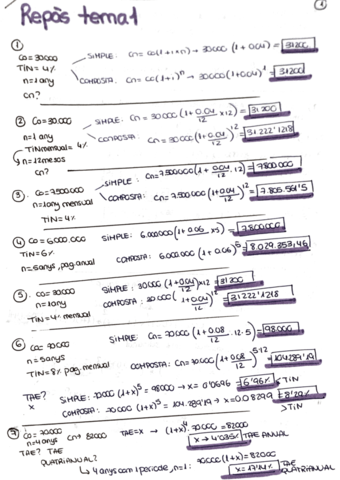 Repàs tema 1
1
① Co=30.000
TIN= 4%
n=1any
Cn?
SIMPLE: Cn= Co(1+i×n) → 30.000 (1+0,04) = 31200
COMPOSTA: Cn= Co(1+i)ⁿ → 30.000 (1+0,04)¹ = 31200
② Co=30.000
n=1any
TIN mensual= 4%
↳ n=12mesos
Cn?
SIMPLE: Cn= 30.000 (1+ 0,04/12 ×12) = 31200
COMPOSTA: Cn= 30.000 (1+ 0,04/12)¹² = 31.222'1218
③ Co=7.500.000
n=1any mensual
TIN=4%
SIMPLE: Cn=7.500.000 (1+ 0,04/12 · 12) = 7800.000
COMPOSTA: Cn= 7.500.000 (1+ 0,04/12)¹²
④ Co=6.000.000
TIN=6%
n=5anys, pag.anual
SIMPLE: 6.000.000 (1+0,06 ×5) = 7.800.000
COMPOSTA: 6.000.000 (1+0,06)⁵ = 8.029.353,46
⑤ Co= 30000
n=1any
TIN=4% mensual
SIMPLE: 30.000 (1+ 0,04/12)×12 = 31200
COMPOSTA: 30.000 (1+ 0,04/12)¹² = 31222'1218
⑥ Co= 70000
n=5anys
TIN=8% pag. mensual
SIMPLE: Cn= 70000 (1+ 0,08/12 · 12·5) = 98000
COMPOSTA: Cn=70000 (1+ 0,08/12)⁵·¹² = 104289'19
TAE?
x
SIMPLE: 70000 (1+x)⁵ = 98000 → x=0'0696 = 6'96% → TIN
COMPOSTA: 70000 (1+x)⁵ = 104.289'19 → x=0'08299 = 8'29% → TIN
⑦ Co=70000
n=4anys Cn= 82000
TAE? TAE
QUATRIANUAL?
TAE=x → (1+x)⁴ · 70000 = 82000
TAE ANUAL
↳ 4 anys com 1 periode, n=1: 70000 (1+x) = 82000
TAE QUATRIANUAL